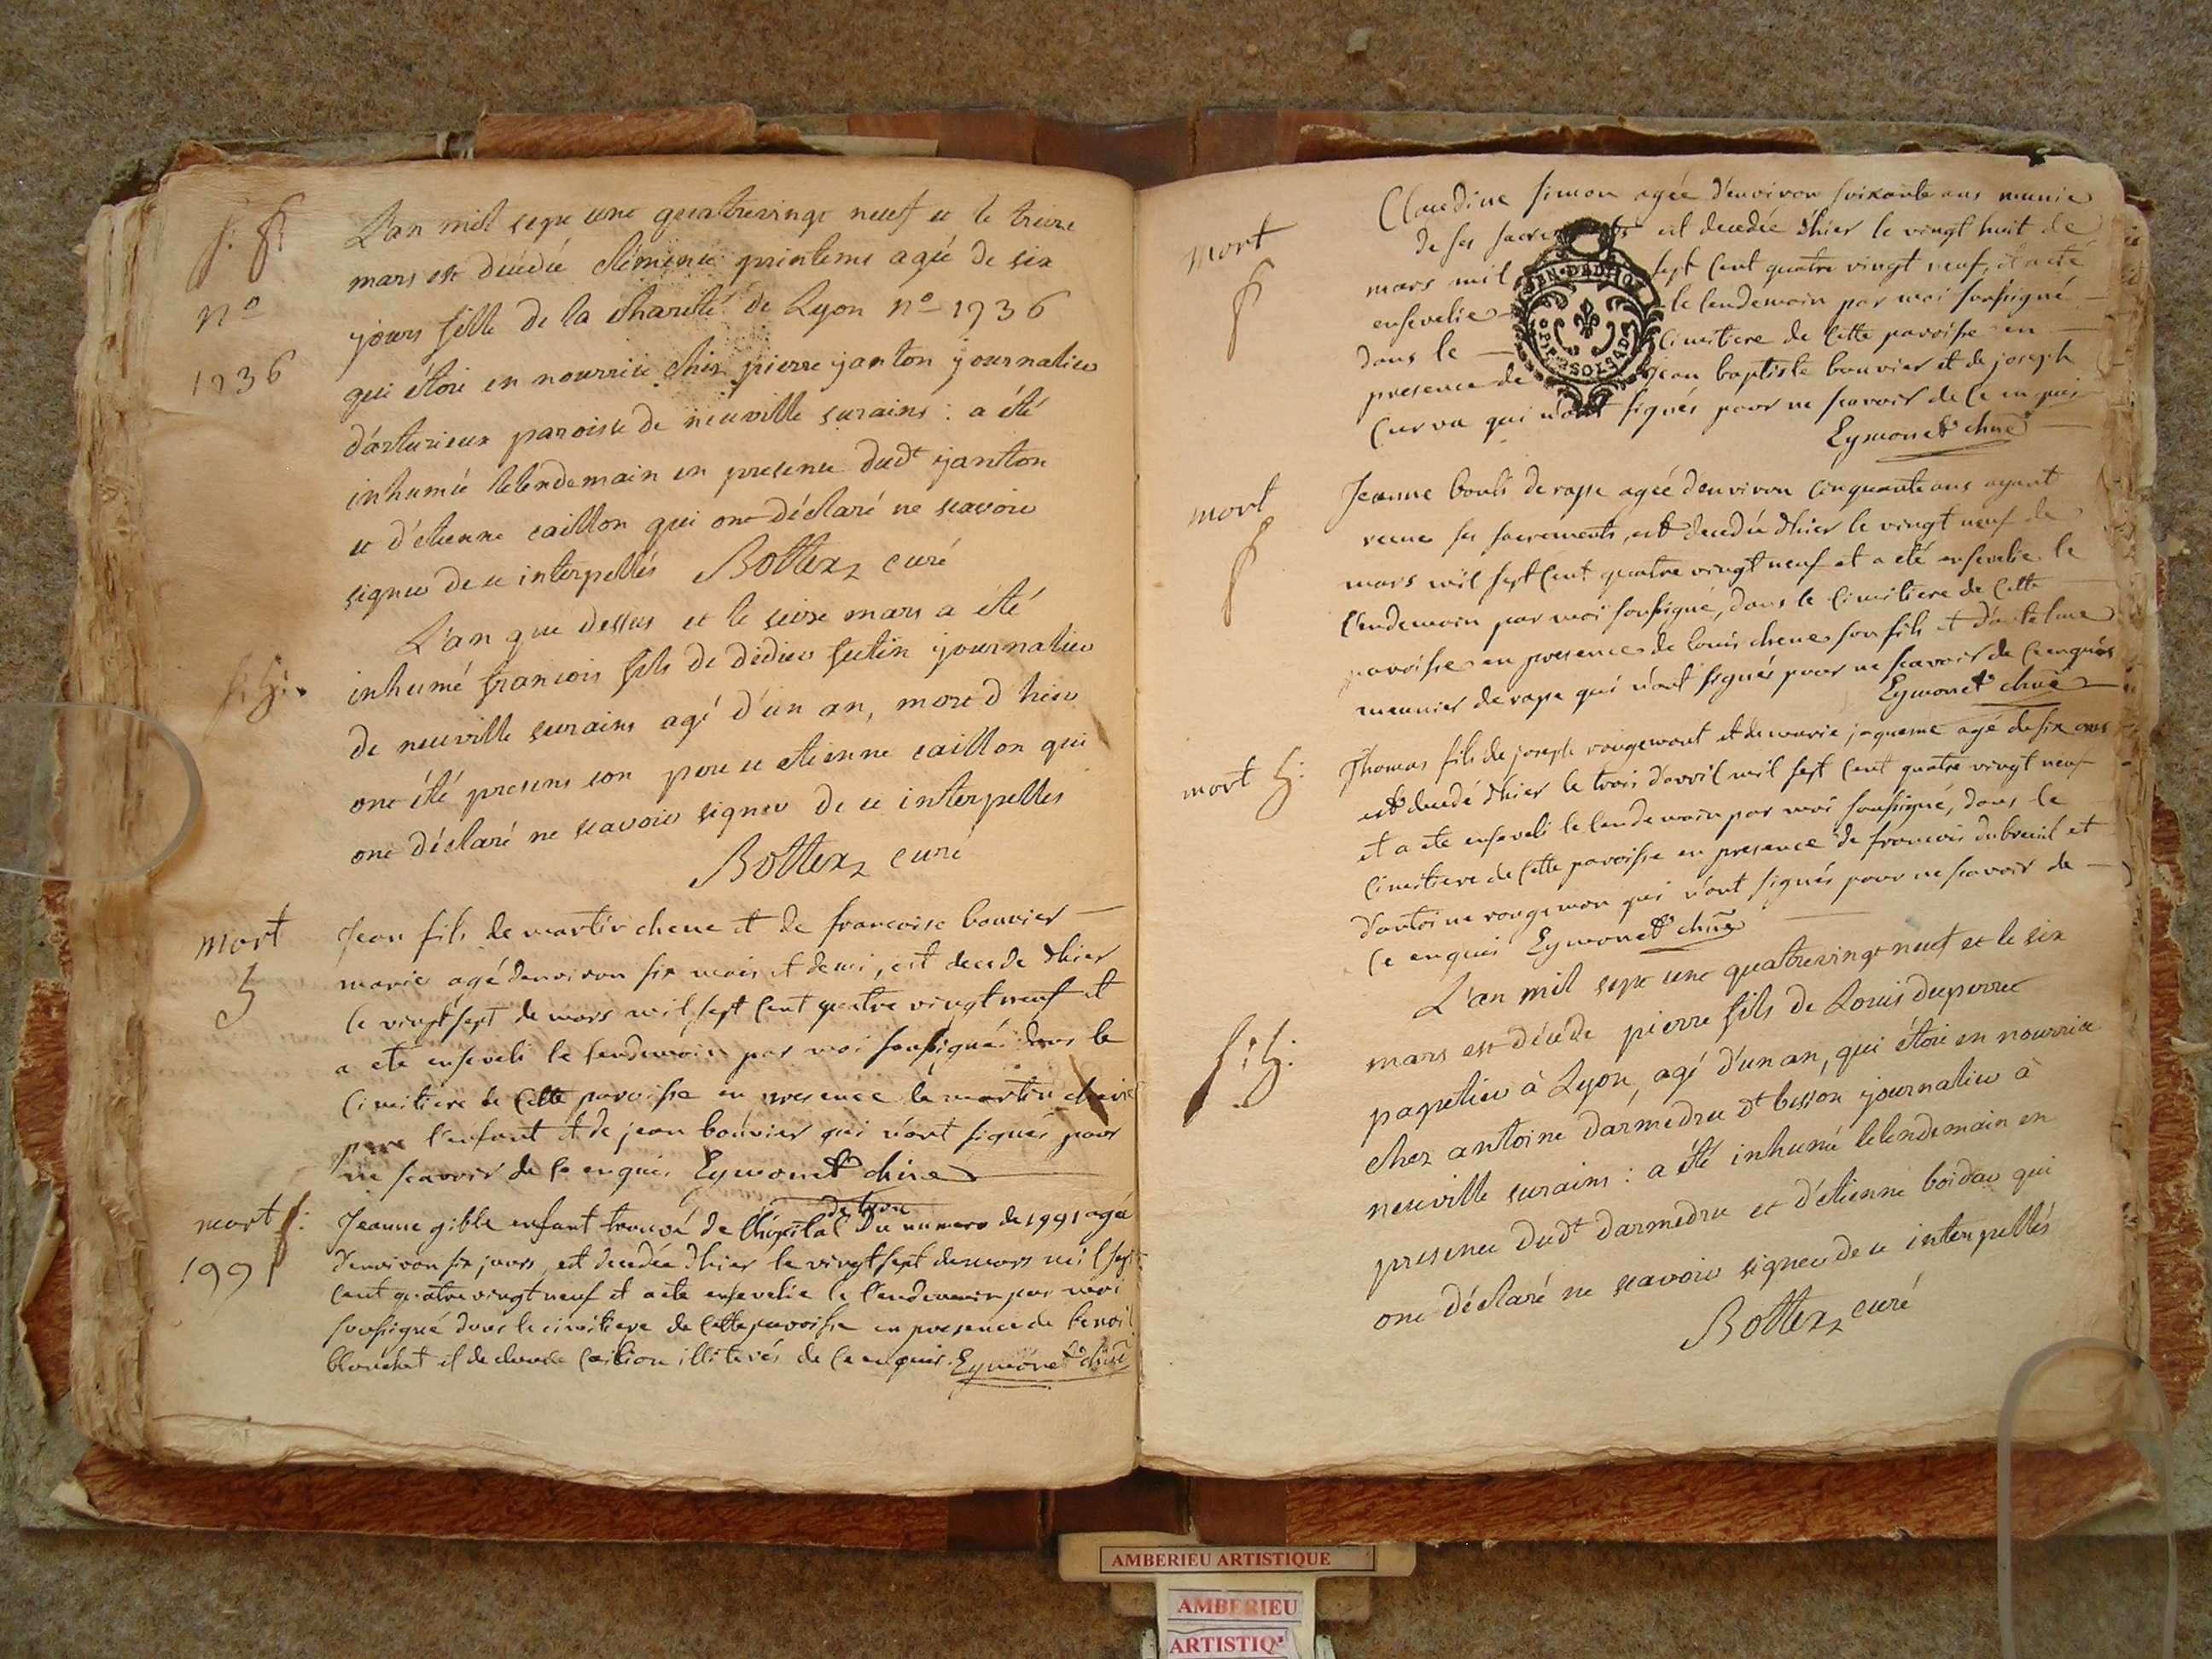 s: f:
n°
1736
L'an mil sept cent quatrevingt neuf et le treize
mars est décédée clémence printems agée de six
jours fille de la charité de Lyon n° 1736
qui étoit en nourrice chez pierre janton journalier
d'arturieux paroisse de neuville surains : a été
inhumée le lendemain en presence dudt janton
et d'etienne caillon qui ont déclaré ne scavoir
signer de ce interpellés Bottex curé
L'an que dessus et le seize mars a été
inhumé francois fils de dédier jutin journalier
de neuville surains agé d'un an, mort d'hier
ont été presens son pere et etienne caillon qui
ont déclaré ne scavoir signer de ce interpellés
Bottex curé
mort
Jean fils de martin chene et de francoise bouvier
marié agé denviron six mois et demi, est decede d'hier
le vingt sept de mars mil sept cent quatre vingt neuf et
a ete enseveli le lendemain par moi soussigné dans le
cimitiere de cette paroisse en presence de martin chene
pere l'enfant et de jean bouvier qui n'ont signés pour
ne scavoir de ce enquis Eymonet chne
mort f:
1991
de lyon
Jeanne gible enfant trouvé de l'hopital du numero de 1991 agée
d'environ six jours, est decedée d'hier le vingt sept de mars mil sept
cent quatre vingt neuf et a ete ensevelie le l'endemain par moi
soussigné dans le cimitiere de cette paroisse en presence de benoit
blanchet et de claude caition illiterés de ce enquis. Eymonet chne
mort
f
Claudine simon agée d'environ soixante ans munie
de ses sacrements est decedée d'hier le vingt huit de
mars mil sept cent quatre vingt neuf, et a eté
ensevelie le lendemain par moi soussigné
dans le cimitiere de cette paroisse en
presence de jean baptiste bouvier et de joseph
curva qui n'ont signés pour ne scavoir de ce enquis
Eymonet chne
mort
f
Jeanne bouli de rape agée d'environ cinquante ans ayant
recue ses sacrements, est decedée d'hier le vingt neuf de
mars mil sept cent quatre vingt neuf et a eté ensevelie le
l'endemain par moi soussigné, dans le cimitiere de cette
paroisse en presence de louis chene son fils et d'antelme
meunier de rape qui n'ont signés pour ne scavoir de ce enquis
Eymonet chne
mort
Thomas fils de joseph rougemont et de marie jaqueme agé de six ans
est decedé d'hier le trois d'avril mil sept cent quatre vingt neuf
et a ete enseveli le lendemain par moi soussigné, dans le
cimitiere de cette paroisse en presence de francois dubreuil et
d'antoine rougemon qui n'ont signés pour ne scavoir de
ce enquis Eymonet chne
L'an mil sept cent quatrevingt neuf et le six
mars est décédé pierre fils de Louis duperret
papetier à Lyon, agé d'un an, qui étoit en nourrice
chez antoine darmedru dt besson journalier à
neuville surains : a été inhumé le lendemain en
presence dudt darmedru et d'etienne boidar qui
ont déclaré ne scavoir signer de ce interpellés
Bottex curé
AMBERIEU ARTISTIQUE
AMBERIEU
ARTISTIQ'